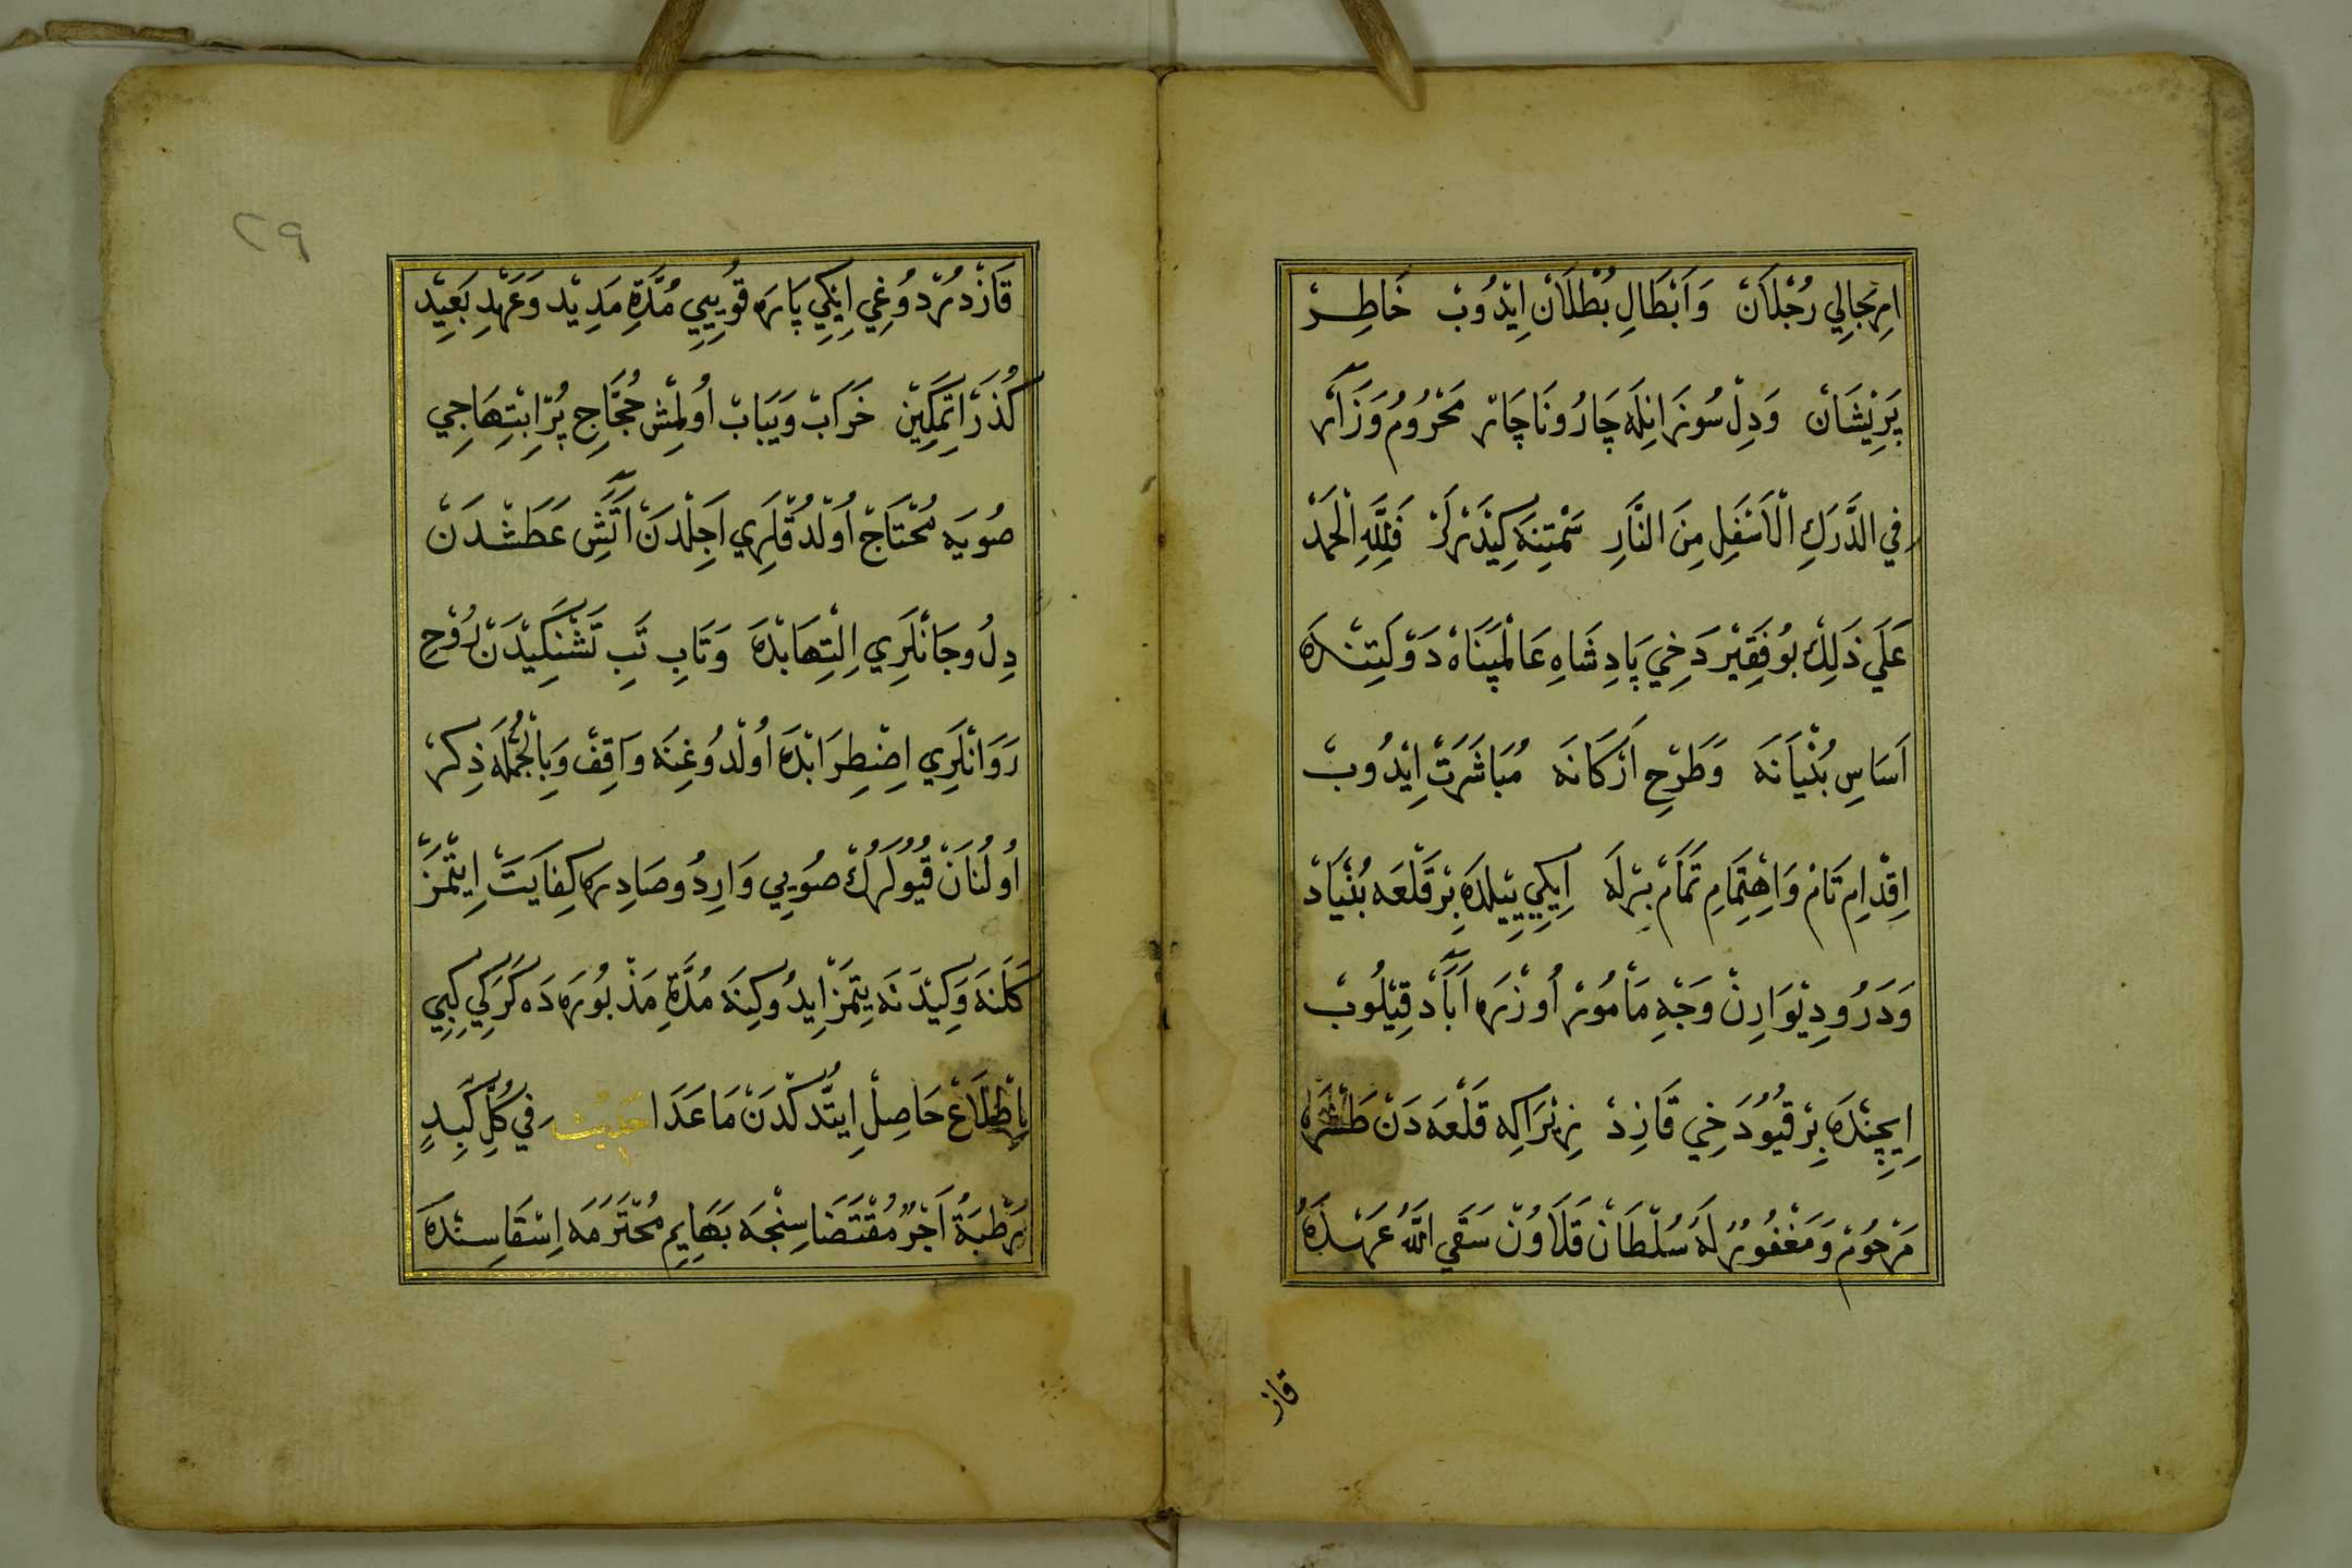 اِرْتِجَالِي رُجْلَانْ وَاَبْطَالِ بُطْلَانْ اِيْدُوبْ خَاطِرْ
پَرِيْشَانْ وَدِلْ سُوزَانِلَه چَارُونَاچَارْ مَحْرُومُ وَزَآرْ
فِي الدَّرَكِ الْاَسْفَلِ مِنَ النَّارِ سَمْتِنَه كِيْدَرْلَرْ فَلِلَّهِ الْحَمْدْ
عَلَي ذَلِكْ بُو فَقِيْرْ دَخِي پَادِشَاهِ عَالَمْپَنَاهْ دَوْلَتِنْدَه
اَسَاسِ بُنْيَانَه وَطَرْحِ اَرْكَانَه مُبَاشَرَتْ اِيْدُوبْ
اِقْدَامِ تَامْ وَاِهْتِمَامِ تَمَامْ بِرْلَه اِيكِي يِيلْدَه بِرْ قَلْعَه بُنْيَادْ
وَدَرُودِيْوَارِنْ وَجْهِ مَأْمُورْ اُوزْرَه آبَادْ قِيْلُوبْ
اِيچِنْدَه بِرْ قُيُو دَخِي قَازِدْ زِيْرَاكِه قَلْعَه دَنْ طَشْرَه
مَرْحُومْ وَمَغْفُورٌ لَهُ سُلْطَانْ قَلَاوُنْ سَقَي اللّٰهُ عَهْدَهُ
قاز
٢٩
قَازْدُرْدُوغِي اِيْكِي پَارَه قُويِيِي مُدَّةِ مَدِيْد وَعَهْدِ بَعِيْد
كُذَرْ اِتْمَكِيْن خَرَابْ وَيَبَابْ اُولْمِشْ حُجَّاجِ پُرْاِبْتِهَاجِي
صُويَه مُحْتَاجْ اُولْدُقْلَرِي اَجِلْدَنْ آتَشِ عَطَشْدَنْ
دِلُ وجَانْلَرِي اِلْتِهَابْدَه وَتَابِ تَبِ تَشْنِكِيْدَنْ رُوْحِ
رَوَانْلَرِي اِضْطِرَابْدَه اُولْدُوغِنَه وَاقِفْ وَبِالْجُمْلَه ذِكِرْ
اُولُنَانْ قُيُولَرُكْ صُويِي وَارِدُ وصَادِرَه كِفَايَتْ اِيْتْمَزْ
كَلَنَه وَكِيْدَنَه يِتْمَزْ اِيْدُوكِنَه مُدَّةِ مَذْبُورَه دَه كَرَكِي كِبِي
اِطِّلَاعْ حَاصِلْ اِيتْدُكْدَنْ مَاعَدَا حَدِيْث فِي كُلِّ كَبِدٍ
رَطْبَةٍ اَجْرٌ مُقْتَضَاسِنْجَه بَهَايِمِ مُحْتَرَمَه اِسْقَاسِنْدَه